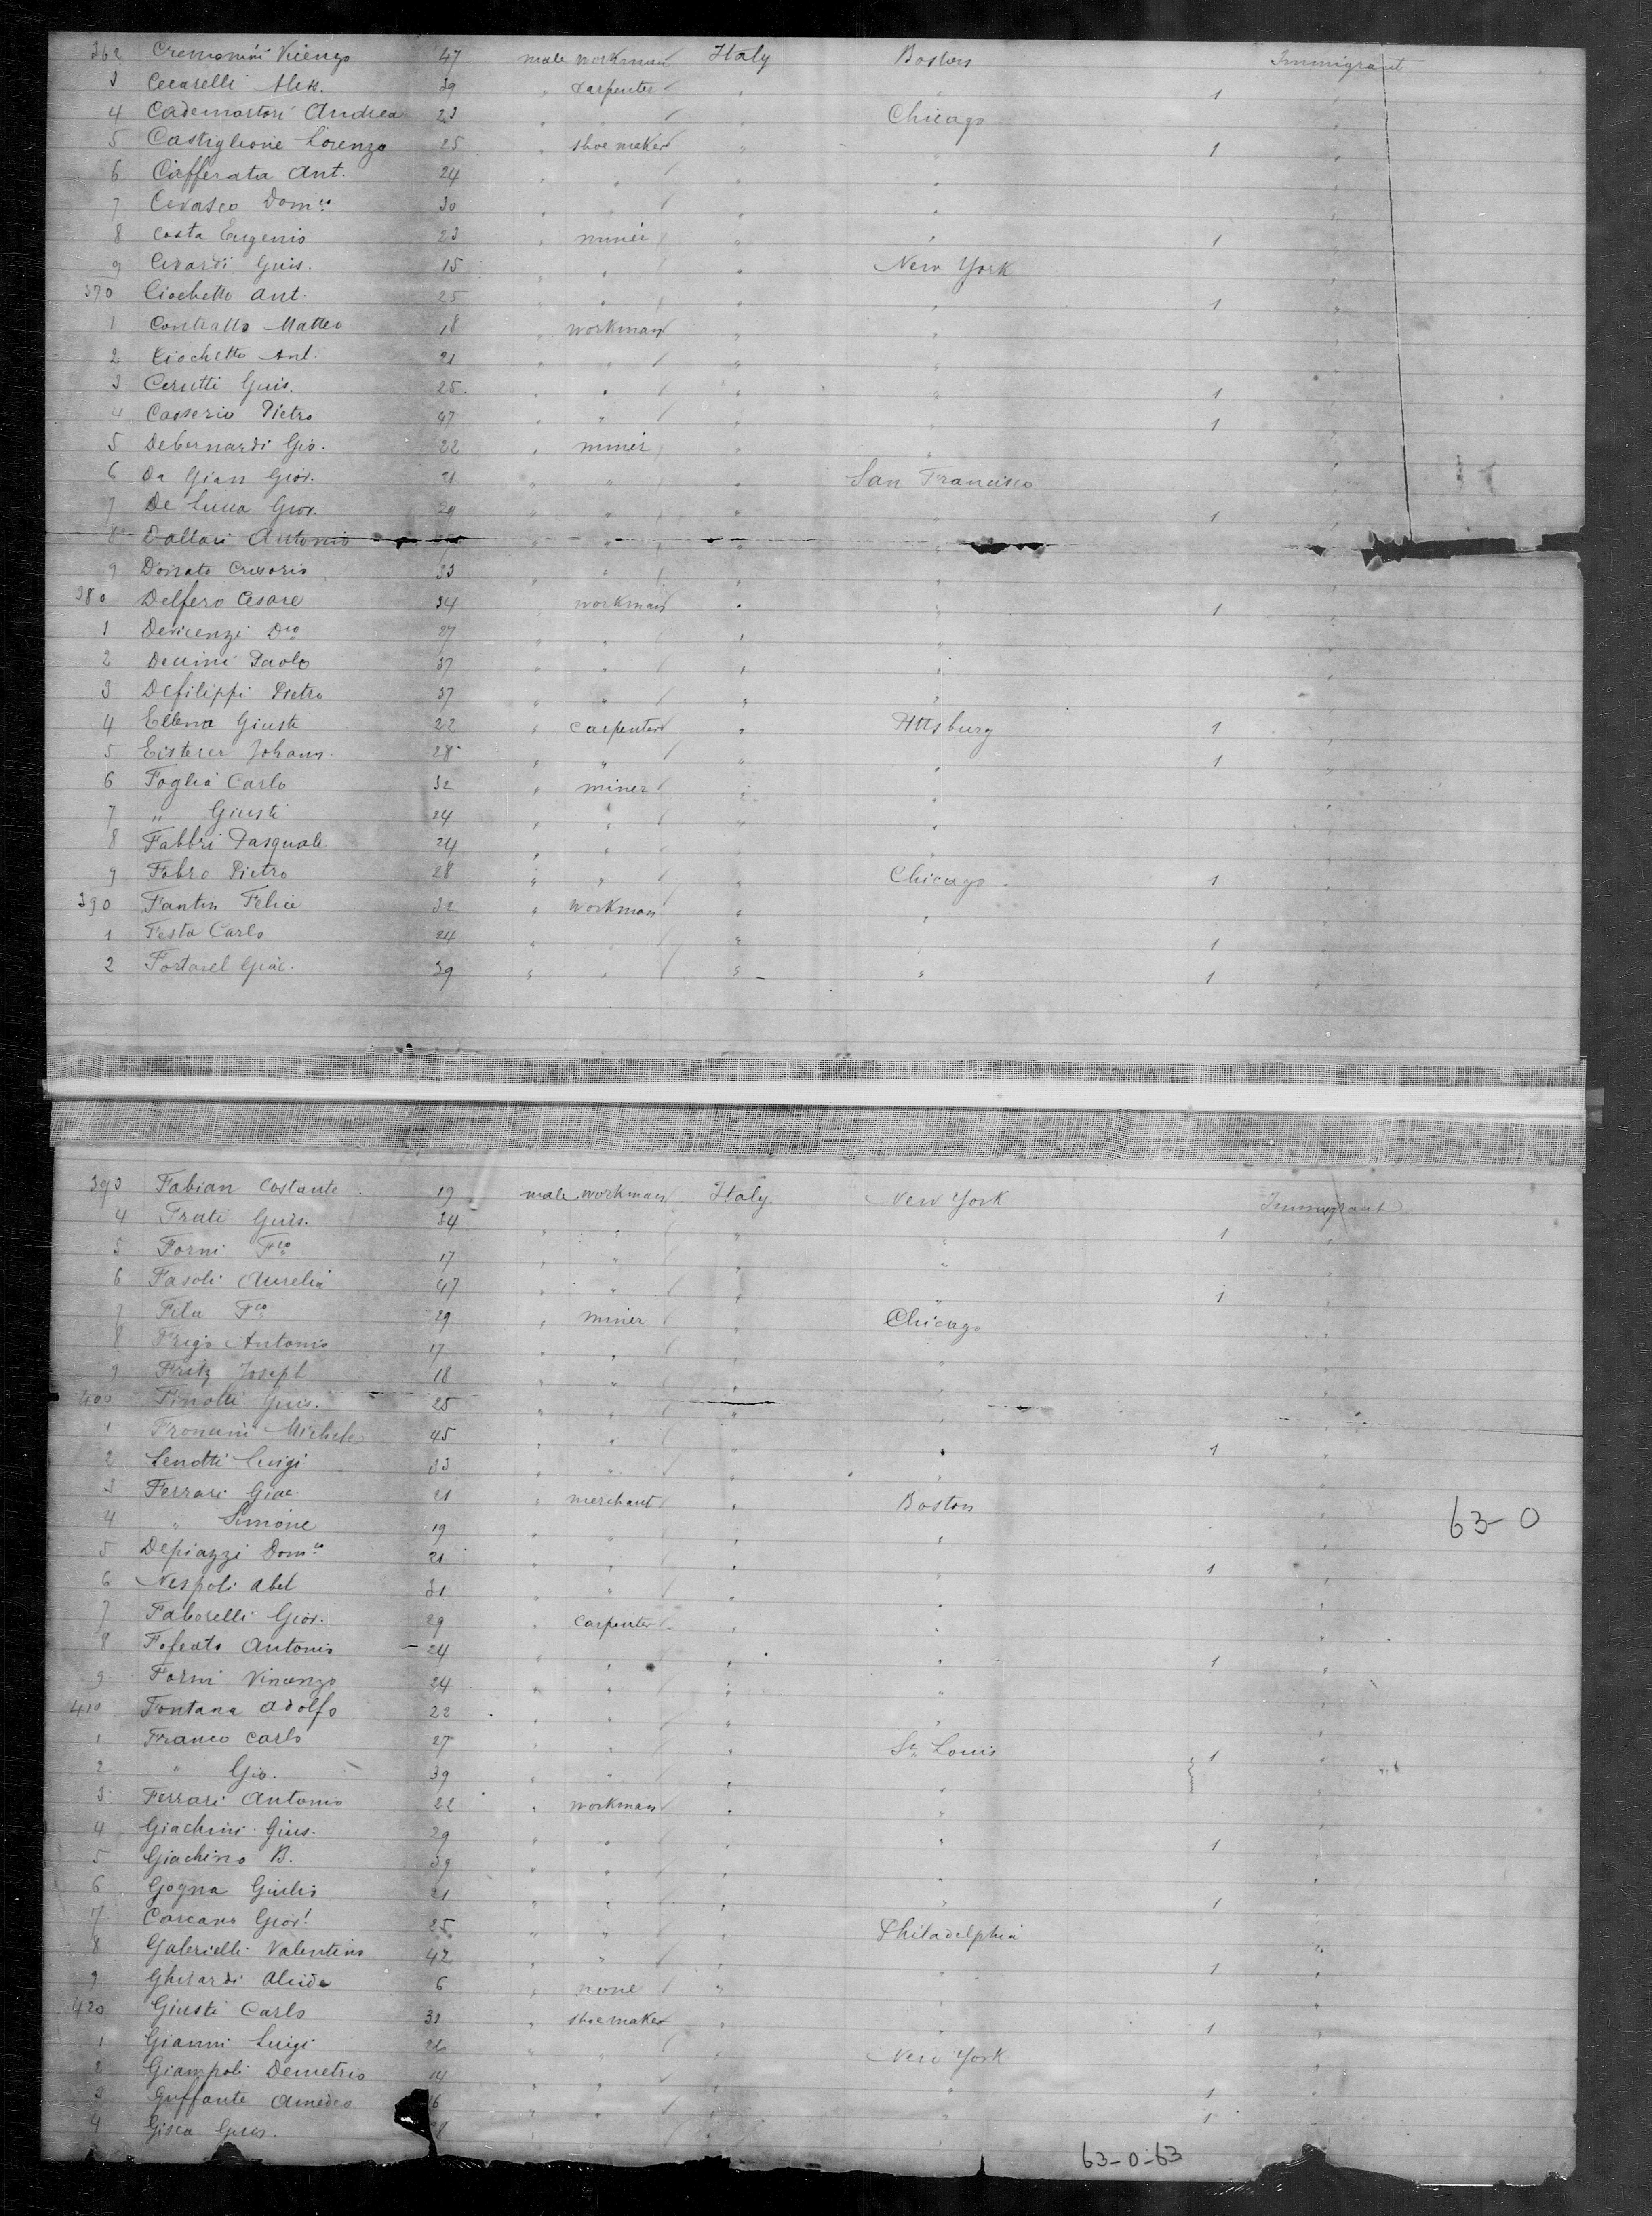 362 Cremonini Vicenzo 47 male workman Italy Boston Immigrant
3 Cecarelli Aless. 39 " carpenter " " 1 "
4 Cademartori Andrea 23 " " " Chicago "
5 Castiglione Lorenzo 25 " shoemaker " " 1 "
6 Ciafferata Ant. 24 " " " " "
7 Cevasco Dom.co 30 " " " " "
8 Costa Eugenio 23 " miner " " 1 "
9 Civardi Guis. 15 " " " New York "
370 Ciochetto Ant. 25 " " " " 1 "
1 Contratto Matteo 18 " workman " " "
2 Ciochetto Ant. 21 " " " " "
3 Cerutti Guis. 25 " " " " 1 "
4 Casserio Pietro 47 " " " " 1 "
5 Debernardi Gio. 22 " miner " " "
6 Da Gian Giov. 21 " " " San Francisco "
7 De Lucca Giov. 29 " " " " 1 "
8 Dallari Antonio " " " "
9 Donato 33 " " " " "
380 Delfero Cesare 34 " workman " " 1 "
1 Devicenzi Dco 27 " " " " "
2 Paolo 37 " " " " "
3 Defilippi Pietro 37 " " " " "
4 Ellena Giusti 22 " carpenter " Pittsburg 1 "
5 Eisterer Johann 28 " " " " 1 "
6 Foglia Carlo 32 " miner " " "
7 " Giusti 24 " " " " "
8 Fabbri Pasquale 24 " " " " "
9 Fabro Pietro 28 " " " Chicago 1 "
390 Fantin Felice 32 " workman " " "
1 Festa Carlo 24 " " " " 1 "
2 Fortarel Giac. 39 " " " " 1 "
393 Fabian Costante 19 male workman Italy New York Immigrant
4 Frati Guis. 34 " " " " 1 "
5 Forni Fco 17 " " " " "
6 Fasoli Aurelia 47 " " " " 1 "
7 Fila Fco 29 " miner " Chicago "
8 Frigo Antonio 17 " " " " "
9 Fritz Joseph 18 " " " " "
400 Finotti Guis. 25 " " " " "
1 Michele 45 " " " " 1 "
2 Lenotti Luigi 33 " " " " "
3 Ferrari Giac. 21 " merchant " Boston "
4 " Simone 19 " " " " "
5 Depiazzi Dom.co 21 " " " " 1 "
6 Nespoli Abel 31 " " " " "
7 Faborelli Giov. 29 " carpenter " " "
8 Antonio 24 " " " " 1 "
9 Forni Vincenzo 24 " " " " "
410 Fontana Adolfo 22 " " " " "
1 Franco Carlo 27 " " " St. Louis 1 "
2 " Gio. 39 " " " " "
3 Ferrari Antonio 22 " workman " " "
4 Giachini Gius. 29 " " " " 1 "
5 Giachino B. 39 " " " " "
6 Gogna Giulio 21 " " " " 1 "
7 Carcano Giov. 25 " " " Philadelphia "
8 Gabrielli Valentino 42 " " " " 1 "
9 Gherardi Alcide 6 " none " " "
420 Giusti Carlo 33 " shoemaker " " 1 "
1 Gianni Luigi 26 " " " New York "
2 Giampoli Demetrio 14 " " " " "
3 Guffante Amedeo 6 " " " " 1 "
4 Gisca Guis. 8 " " " " 1 "
63-0
63-0-63